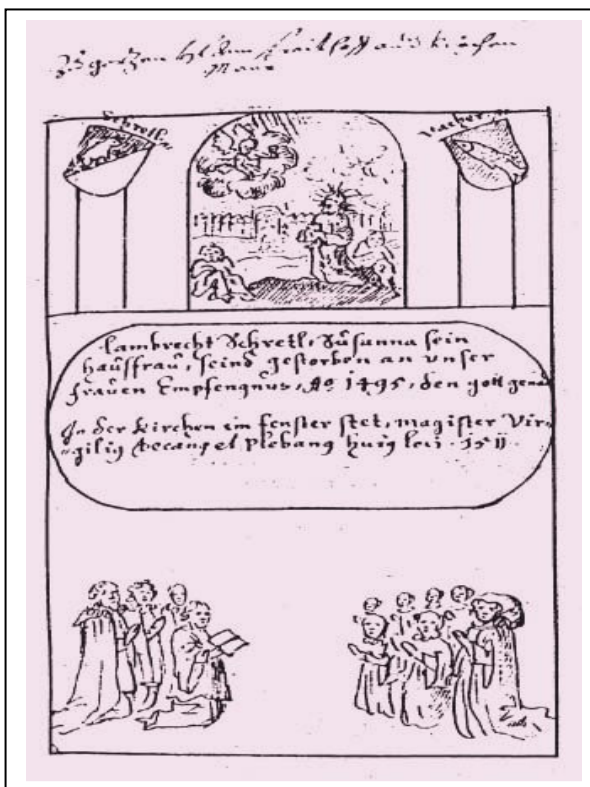 Zu gerzen
Schretl
lambrecht Schretl, Susanna sein
hausfrau, seind gestorben an vnser
frauen Empfengnus, Ao 1495, den gott genad
In der Kirchen im fenster stet, magister Vir-
gilig decang et Plebang huig loci. 1511